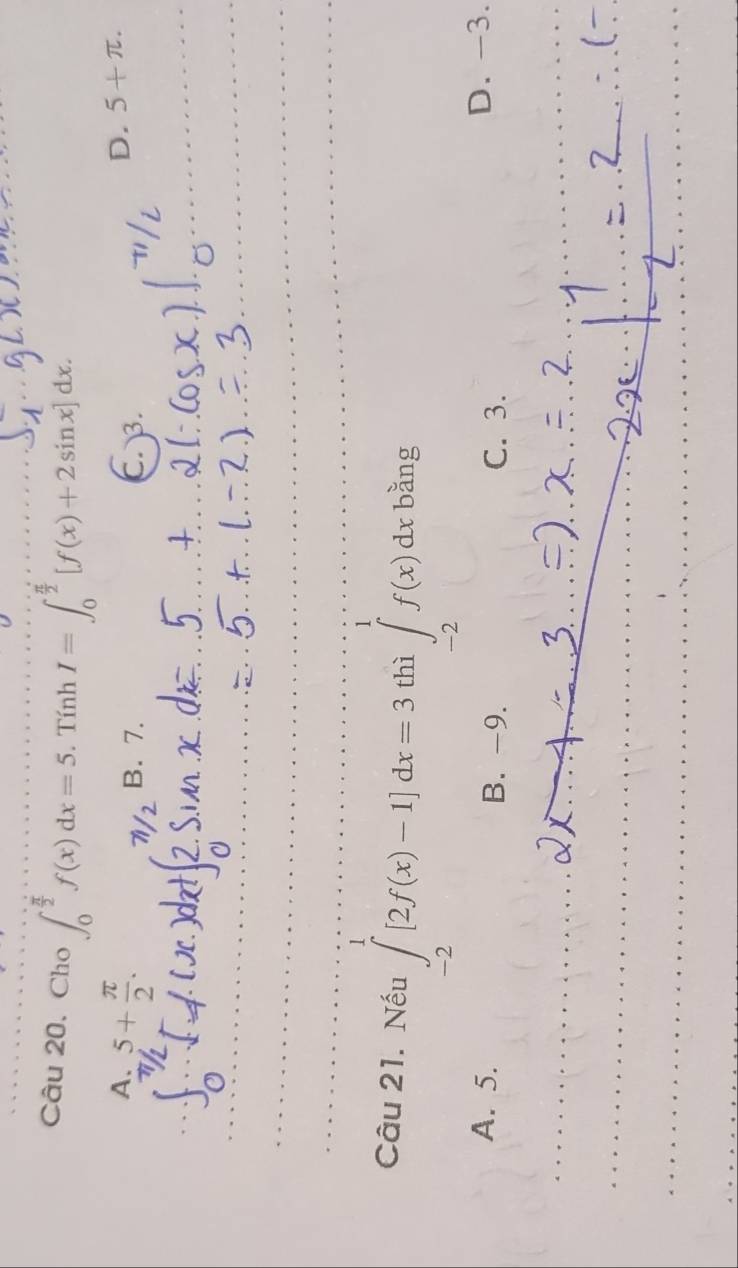 ∫₁ g(x)
Câu 20. Cho ∫₀^{π/2} f(x) dx = 5. Tính I = ∫₀^{π/2} [f(x) + 2 sin x] dx.
A. 5 + π/2. B. 7. C. 3. D. 5 + π.
∫₀^{π/2} f(x) dx + ∫₀^{π/2} 2 sin x dx = 5 + 2(-cos x)|₀^{π/2}
= 5 + (-2) = 3
Câu 21. Nếu ∫₋₂¹ [2f(x) − 1] dx = 3 thì ∫₋₂¹ f(x) dx bằng
A. 5. B. −9. C. 3. D. −3.
2x - 1 = 3 => x = 2
2x |₋₂¹ = 2 - (-